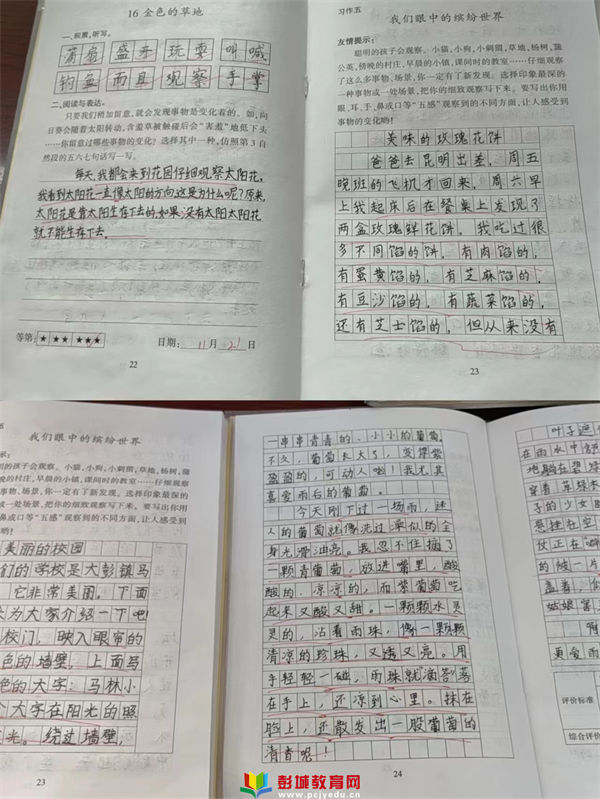 16 金色的草地
一、积累,听写。
蒲扇 盛开 玩耍 叫喊
钓鱼 而且 观察 手掌
二、阅读与表达。
只要我们稍加留意,就会发现事物是变化着的。如,向
日葵会随着太阳转动,含羞草被触碰后会“害羞”地低下头
……你留意过哪些事物的变化?选择其中一种,仿照第3自
然段的五六七句话写一写。
每天,我都会来到花园仔细观察太阳花,
我看到太阳花一直像太阳的方向这是为什么呢?原来,
太阳花是靠太阳生存下去的,如果没有太阳太阳花
就不能生存下去。
等第:★ ★★ ★★★
日期:11月21日
22
习作五
我们眼中的缤纷世界
友情提示:
聪明的孩子会观察。小猫,小狗,小刺猬,草地,杨树,蒲
公英,傍晚的村庄,早晨的小镇,课间时的教室……仔细观察
了这么多事物、场景,你一定有了新发现。选择印象最深的
一种事物或一处场景,把你的细致观察写下来。要写出你用
眼、耳、手、鼻或口等“五感”观察到的不同方面,让人感受到
事物的变化哟!
美味的玫瑰花饼
爸爸去昆明出差,周五
晚班的飞机才回来,周六早
上我起床后在餐桌上发现了
两盒玫瑰鲜花饼。我吃过很
多不同馅的饼,有肉馅的,
有蛋黄馅的,有芝麻馅的,
有豆沙馅的,有蔬菜馅的,
还有芝士馅的,但从来没有
23
我们眼中的缤纷世界
示:
明的孩子会观察。小猫,小狗,小刺猬,草地,杨树,蒲
晚的村庄,早晨的小镇,课间时的教室……仔细观察
多事物、场景,你一定有了新发现。选择印象最深的
物或一处场景,把你的细致观察写下来。要写出你用
鼻或口等“五感”观察到的不同方面,让人感受到
哟!
美丽的校园
们的学校是大彭镇马
它非常美丽,下面
来为大家介绍一下吧
校门,映入眼帘的
色的墙壁,上面马
色的大字:马林小
个大字在阳光的照
光。绕过墙壁,
23
一串串青青的、小小的葡萄,
不久,葡萄长大了,变得紫
盈盈的,可动人啦!我尤其
喜爱雨后的葡萄。
今天刚下过一场雨,迷
人的葡萄就像洗过澡似的全
身光滑油亮。我忍不住摘了
一颗青葡萄,放进嘴里,酸
酸的、凉凉的,而紫葡萄吃
起来又酸又甜。一颗颗水灵
灵的,沾着雨珠,像一颗颗
清凉的珍珠,又透又亮。用
手轻轻一碰,雨珠就“滴答”落
在手上,还凉到心里。抹在
脸上,还散发出一股葡萄的
清香呢!
24
叶子遮
在雨水中
穿着
子的少女
悬挂在空
仗正在
的被一片
盖着,
姑娘
更爱雨
评价标准
综合评价
彭城教育网
www.pcjyedu.cn